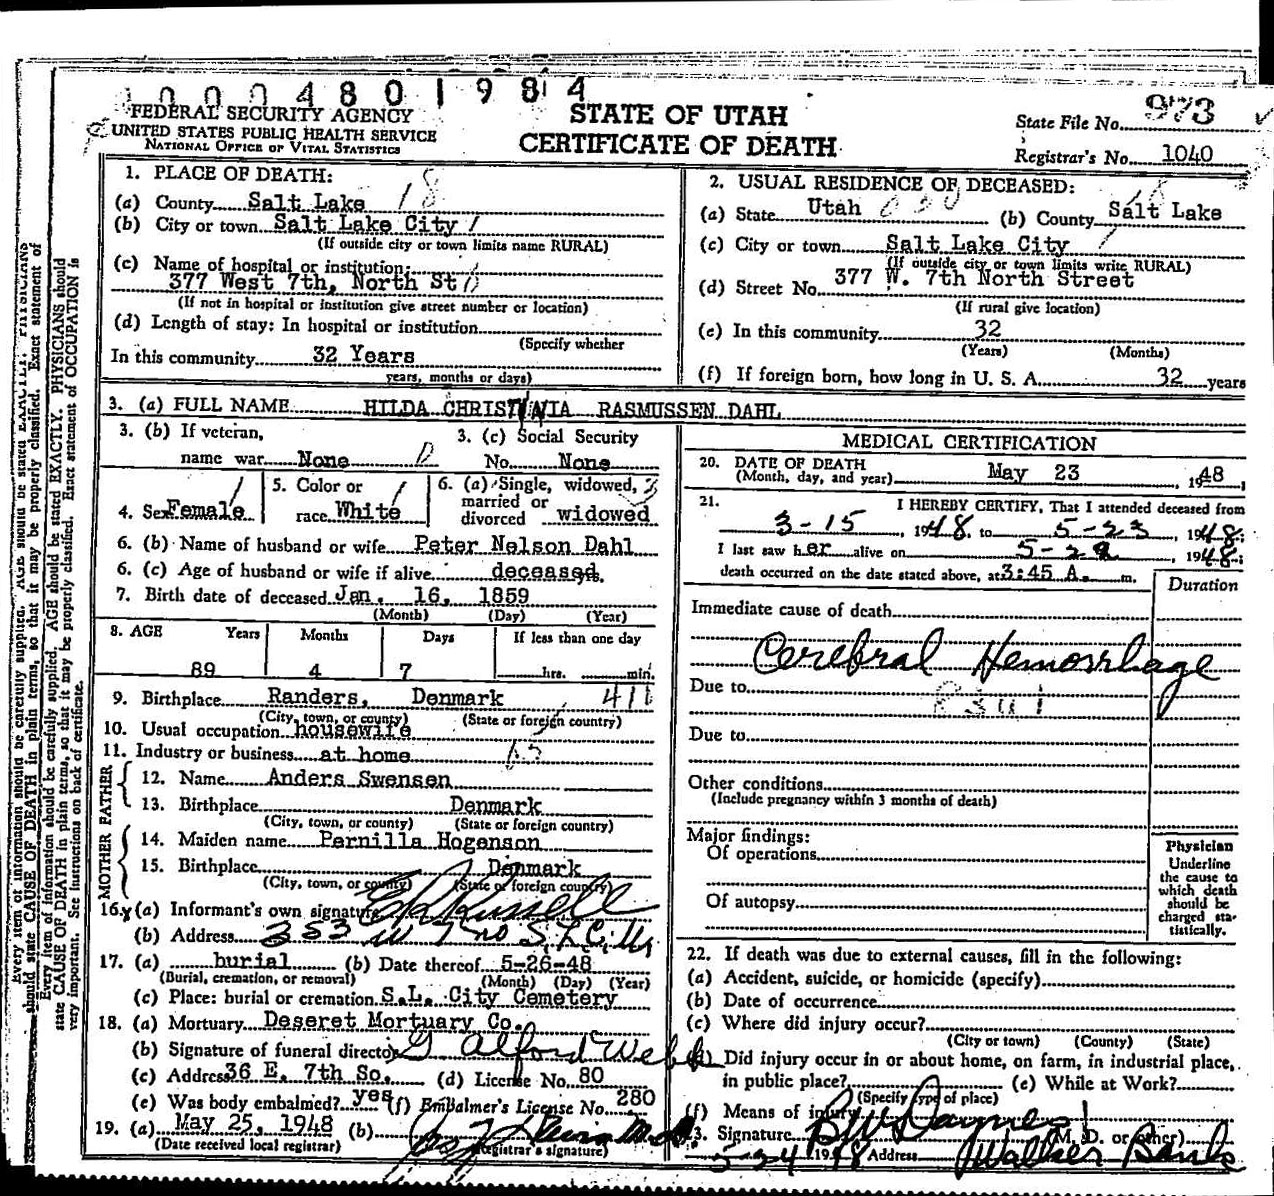 10004801984
FEDERAL SECURITY AGENCY
UNITED STATES PUBLIC HEALTH SERVICE
NATIONAL OFFICE OF VITAL STATISTICS
STATE OF UTAH
CERTIFICATE OF DEATH
State File No. 973
Registrar's No. 1040
1. PLACE OF DEATH: 18
(a) County Salt Lake
(b) City or town Salt Lake City 1
(If outside city or town limits name RURAL)
(c) Name of hospital or institution:
377 West 7th, North St
(If not in hospital or institution give street number or location)
(d) Length of stay: In hospital or institution
(Specify whether
In this community 32 Years
years, months or days)
2. USUAL RESIDENCE OF DECEASED:
(a) State Utah (b) County Salt Lake
(c) City or town Salt Lake City
(If outside city or town limits write RURAL)
(d) Street No. 377 W. 7th North Street
(If rural give location)
(e) In this community 32
(Years) (Months)
(f) If foreign born, how long in U. S. A. 32 years
3. (a) FULL NAME HILDA CHRISTINIA RASMUSSEN DAHL
3. (b) If veteran,
name war None
3. (c) Social Security
No. None
4. Sex Female
5. Color or
race White
6. (a) Single, widowed,
married or
divorced widowed
6. (b) Name of husband or wife Peter Nelson Dahl
6. (c) Age of husband or wife if alive deceased.
7. Birth date of deceased Jan. 16, 1859
(Month) (Day) (Year)
8. AGE Years Months Days If less than one day
89 4 7 hrs. min.
9. Birthplace Randers, Denmark 411
(City, town, or county) (State or foreign country)
10. Usual occupation housewife
11. Industry or business at home
FATHER
12. Name Anders Swensen
13. Birthplace Denmark
(City, town, or county) (State or foreign country)
MOTHER
14. Maiden name Pernilla Hogenson
15. Birthplace Denmark
(City, town, or county) (State or foreign country)
16. (a) Informant's own signature Russell
(b) Address 353 W 7 no S.L.C. Ut
17. (a) burial (b) Date thereof 5-26-48
(Burial, cremation, or removal) (Month) (Day) (Year)
(c) Place: burial or cremation S.L. City Cemetery
18. (a) Mortuary Deseret Mortuary Co.
(b) Signature of funeral director G Alford Webb
(c) Address 36 E. 7th So. (d) License No. 80
(e) Was body embalmed? yes (f) Embalmer's License No. 280
19. (a) May 25, 1948 (b)
(Date received local registrar) (Registrar's signature)
MEDICAL CERTIFICATION
20. DATE OF DEATH
(Month, day, and year) May 23, 1948
21. I HEREBY CERTIFY, That I attended deceased from
3-15, 1948, to 5-23, 1948;
I last saw her alive on 5-22, 1948;
death occurred on the date stated above, at 3:45 A. m.
Duration
Immediate cause of death
Cerebral Hemorrhage
Due to
Due to
Other conditions
(Include pregnancy within 3 months of death)
Major findings:
Of operations
Of autopsy
Physician
Underline
the cause to
which death
should be
charged sta-
tistically.
22. If death was due to external causes, fill in the following:
(a) Accident, suicide, or homicide (specify)
(b) Date of occurrence
(c) Where did injury occur?
(City or town) (County) (State)
(d) Did injury occur in or about home, on farm, in industrial place,
in public place? (e) While at Work?
(Specify type of place)
(f) Means of injury
23. Signature (M. D. or other)
5-24 1948 Address Walker Bank
Every item of information should be carefully supplied. AGE should be stated EXACTLY. PHYSICIANS should
state CAUSE OF DEATH in plain terms, so that it may be properly classified. Exact statement of OCCUPATION is
very important. See instructions on back of certificate.